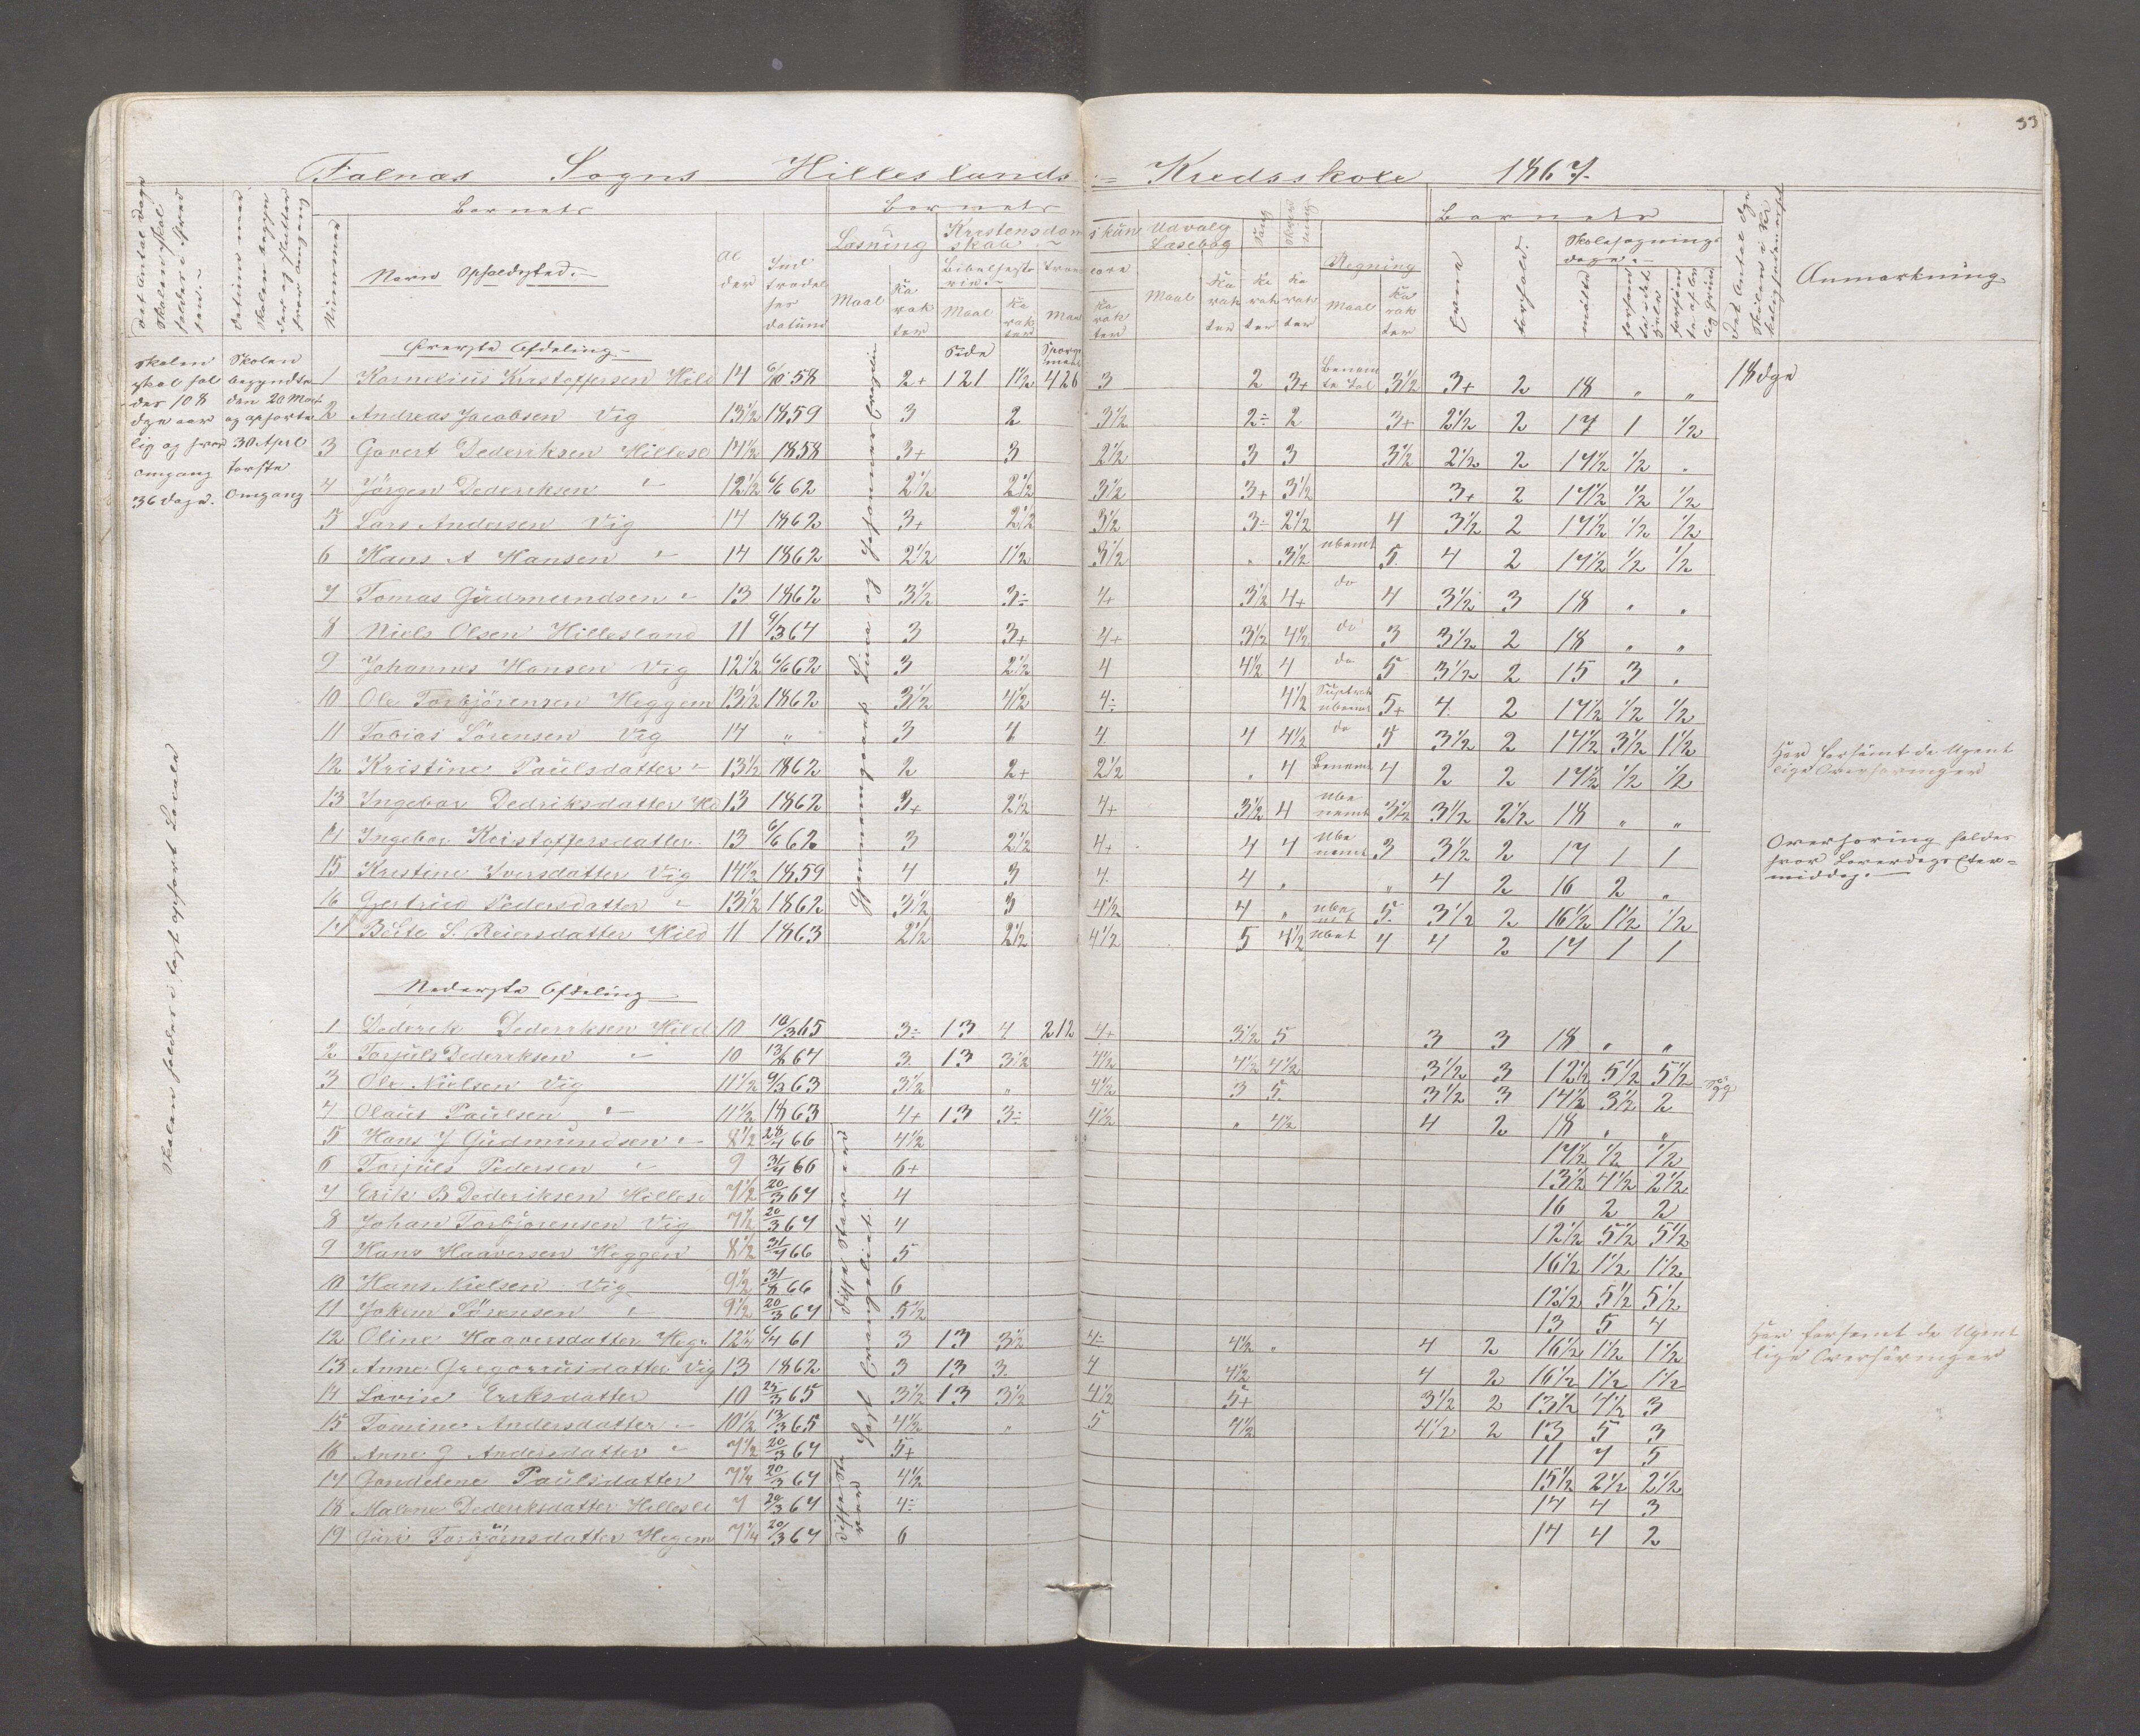 33
Falnæs Sogns Hilleslands Kredsskole 1867.
Det Antal Dage Skolen skal holdes i hver
Datum naar Skolen begynder og slutter hver omgang
Nummer
Barnets
Navn Opholdssted.
Alder
Indtrædelses datum
Barnets
Læsning
Maal
Karakter
Kristendomskundskab
Bibelhistorie
Maal
Karakter
Maal
Karakter
Udvalg Læsebog
Maal
Karakter
Sang
Karakter
Skrivning
Karakter
Regning
Maal
Karakter
Barnets
Evne
Forhold.
Skolesøgnings dage.
mødte
forsømte i det hele
forsømte af lovlig grund
Det Antal dge Skolen i Virkeligheden er holdt
Anmærkning
Skolen skal holdes 108 dge aarlig og hver omgang 36 dage.
Skolen begyndte den 20 Mart og ophørte 30 April første Omgang
Skolen holdes i lagt opført Locale
Øverste Afdeling
Side
Spørgsmaal
Gjennemgaaet Lucas og Johannes Evangelie
1 Kornelius Kristoffersen Hild 14 6/10 58 2+ 121 1½ 426 3 2 3+ Benemte Tal 3½ 3+ 2 18 " " 18 dge
2 Andreas Jacobsen Vig 13½ 1859 3 2 3½ 2÷ 2 3+ 2½ 2 17 1 ½
3 Govert Dederiksen Hillesl 14½ 1858 3+ 3 2½ 3 3 3½ 2½ 2 17½ ½ "
4 Jörgen Dederiksen " 12½ 6/6 62 2½ 2½ 3½ 3+ 3½ 3+ 2 17½ ½ ½
5 Lars Andersen Vig 14 1862 3+ 2½ 3½ 3÷ 2½ 4 3½ 2 17½ ½ ½
6 Hans A Hansen " 14 1862 2½ 1½ 3½ " 3½ ubemt 5 4 2 17½ ½ ½
7 Tomas Gudmundsen " 13 1862 3½ 3÷ 4+ 3½ 4+ do 4 3½ 3 18 " "
8 Niels Olsen Hillesland 11 6/3 64 3 3+ 4+ 3½ 4½ do 3 3½ 2 18 " "
9 Johannes Hansen Vig 12½ 6/6 62 3 2½ 4 4½ 4 do 5 3½ 2 15 3 "
10 Ole Torbjörensen Heggem 13½ 1862 3½ 4½ 4÷ 4½ Suptrak ubenemt 5+ 4 2 17½ ½ ½
11 Tobias Sörensen Vig 14 " 3 4 4 4 4½ do 5 3½ 2 14½ 3½ 1½
Har forsømt de Ugentlige Overhøringer
12 Kristine Paulsdatter " 13½ 1862 2 2+ 2½ " 4 Benemt 4 2 2 17½ ½ ½
13 Ingebor Dedriksdatter Hild 13 1862 3+ 2½ 4+ 3½ 4 Ubenemt 3½ 3½ 2½ 18 " "
14 Ingebor Kristoffersdatter 13 6/6 62 3 2½ 4+ 4 4 Ubenemt 3 3½ 2 17 1 1
Overhøring holdes hver Løverdags Eftermiddag.
15 Kristine Iversdatter Vig 14½ 1859 4 3 4 4 " " 4 2 16 2 "
16 Gertrud Pedersdatter " 13½ 1862 3½ 3 4½ 4 " Ubenemt 5 3½ 2 16½ 1½ ½
17 Berte S. Reiersdatter Hild 11 1863 2½ 2½ 4½ 5 4½ Ubet 4 4 2 17 1 1
Nederste Afdeling
1 Dederik Dederiksen Hild 10 10/3 65 3÷ 13 4 212 4+ 3½ 5 3 3 18 " "
2 Torjuls Dederiksen " 10 13/6 64 3 13 3½ 4½ 4½ 4½ 3½ 3 12½ 5½ 5½
3 Ole Nielsen Vig 11½ 6/3 63 3½ " 4½ 3 5 3½ 3 14½ 3½ 2
4 Olaus Paulsen " 11½ 1863 4+ 13 3÷ 4½ " 4½ 4 2 18 " "
5 Hans J Gudmundsen " 8½ 28/4 66 4½ 17½ ½ ½
6 Torjuls Pedersen " 9 31/4 66 6+ 13½ 4½ 2½
7 Erik B Dederiksen Hillesl 7½ 20/3 67 4 16 2 2
8 Johan Torbjörensen Vig 7½ 20/3 67 4 12½ 5½ 5½
9 Hans Haaversen Heggen 8½ 31/4 66 5 16½ 1½ 1½
10 Hans Nielsen Vig 9½ 31/8 66 6 12½ 5½ 5½
11 Jokem Sörensen " 9½ 20/3 67 5½ 13 5 4
12 Oline Haaversdatter Hegr 12½ 6/4 61 3 13 3½ 4÷ 4½ " 4 2 16½ 1½ 1½
Har forsømt de Ugentlige Overhöringer
13 Anne Gregoriusdatter Vig 13 1862 3 13 3 4 4½ 4 2 16½ 1½ 1½
14 Lovise Eriksdatter 10 25/3 65 3½ 13 3½ 4½ 5+ 3½ 2 13½ 4½ 3
15 Tomine Andersdatter " 10½ 13/3 65 4½ " 5 4½ 4½ 2 13 5 3
16 Anne J Andersdatter " 7½ 20/3 67 5+ 11 7 5
17 Gondelene Paulsdatter 7¼ 20/3 67 4½ 15½ 2½ 2½
18 Malene Dederiksdatter Hillesl 7 20/3 67 4÷ 14 4 3
19 Guri Torbjörnsdatter Hegem 7¼ 20/3 67 6 14 4 2